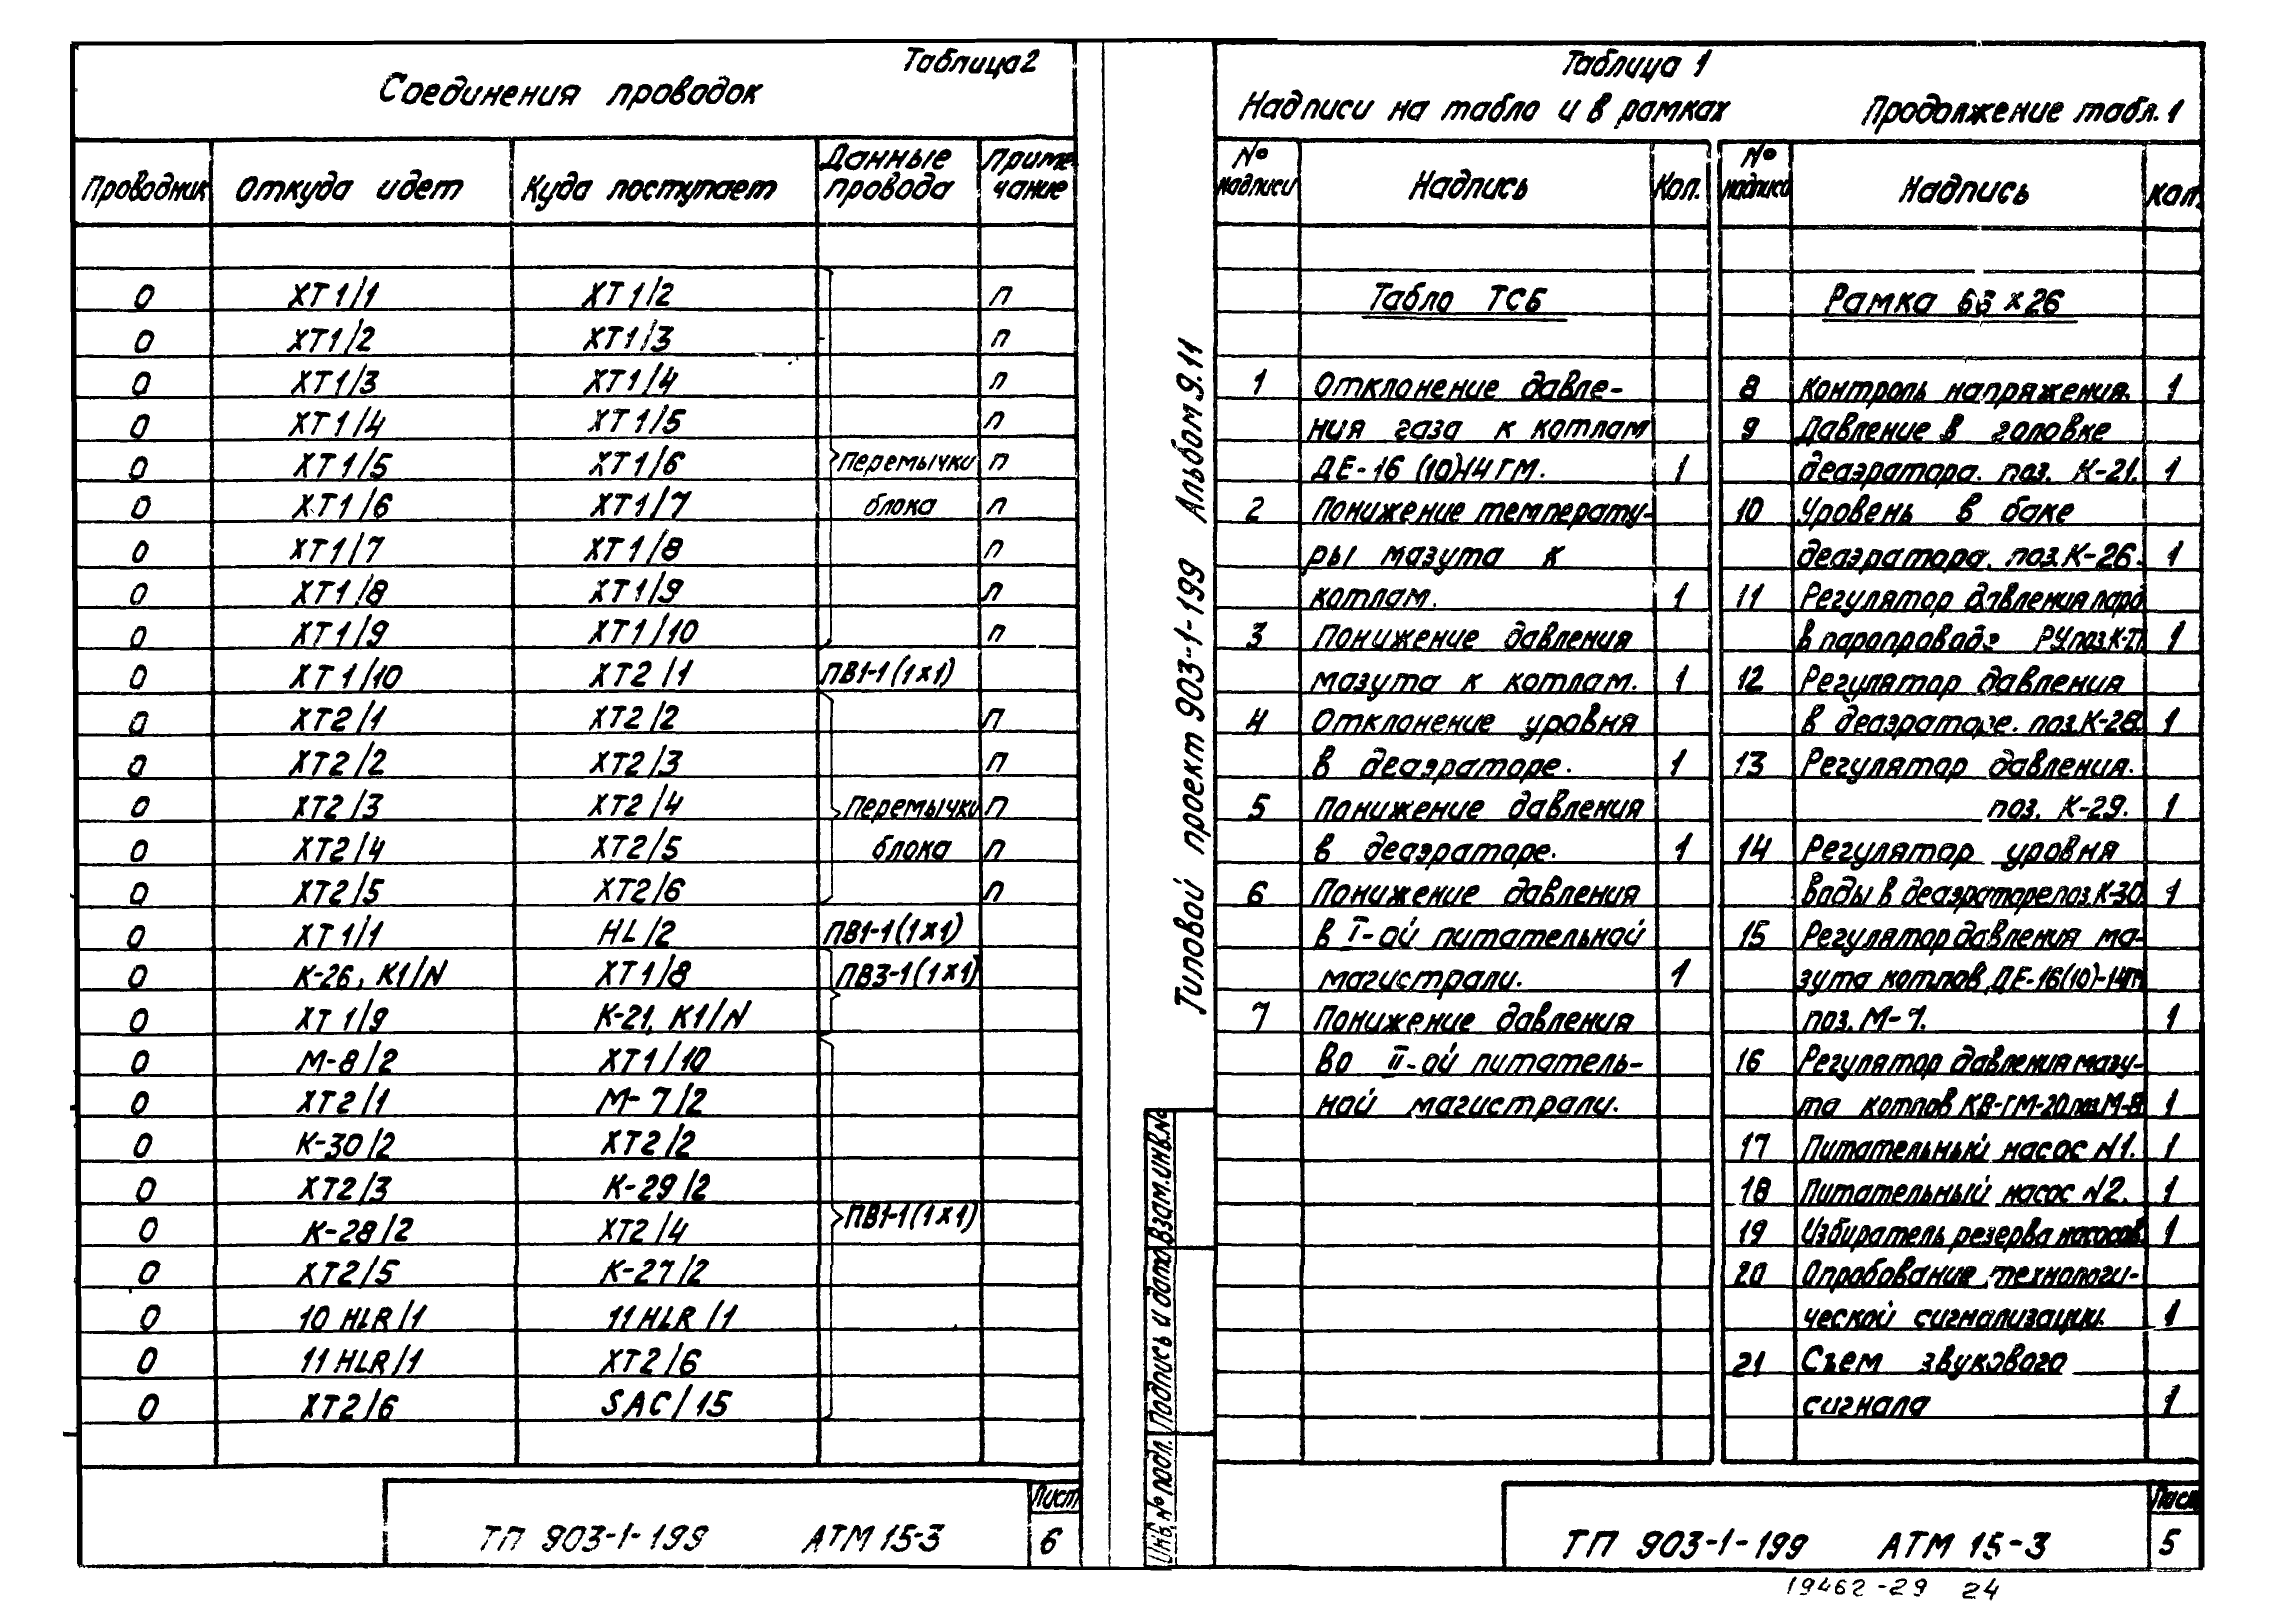 Таблица 2
Соединения проводок
Проводник Откуда идет Куда поступает Данные провода Приме-чание
0 ХТ1/1 ХТ1/2 п
0 ХТ1/2 ХТ1/3 п
0 ХТ1/3 ХТ1/4 п
0 ХТ1/4 ХТ1/5 п
0 ХТ1/5 ХТ1/6 Перемычки п
0 ХТ1/6 ХТ1/7 блока п
0 ХТ1/7 ХТ1/8 п
0 ХТ1/8 ХТ1/9 п
0 ХТ1/9 ХТ1/10 п
0 ХТ1/10 ХТ2/1 ПВ1-1(1х1)
0 ХТ2/1 ХТ2/2 п
0 ХТ2/2 ХТ2/3 п
0 ХТ2/3 ХТ2/4 Перемычки п
0 ХТ2/4 ХТ2/5 блока п
0 ХТ2/5 ХТ2/6 п
0 ХТ1/1 HL/2 ПВ1-1(1х1)
0 К-26, К1/N ХТ1/8 ПВ3-1(1х1)
0 ХТ1/9 К-21, К1/N
0 М-8/2 ХТ1/10
0 ХТ2/1 М-7/2
0 К-30/2 ХТ2/2
0 ХТ2/3 К-29/2
0 К-28/2 ХТ2/4 ПВ1-1(1х1)
0 ХТ2/5 К-27/2
0 10 HLR/1 11 HLR/1
0 11 HLR/1 ХТ2/6
0 ХТ2/6 SAC/15
ТП 903-1-199 АТМ 15-3
Лист
6
Типовой проект 903-1-199 Альбом 9.11
Инв. № подл. Подпись и дата Взам. инв. №
Таблица 1
Надписи на табло и в рамках
№ надписи Надпись Кол.
Табло ТСБ
1 Отклонение давле-
ния газа к котлам
ДЕ-16 (10)-14 ГМ. 1
2 Понижение температу-
ры мазута к
котлам. 1
3 Понижение давления
мазута к котлам. 1
4 Отклонение уровня
в деаэраторе. 1
5 Понижение давления
в деаэраторе. 1
6 Понижение давления
в I-ой питательной
магистрали. 1
7 Понижение давления
во II-ой питатель-
ной магистрали.
Продолжение табл. 1
№ надписи Надпись кол.
Рамка 63 х 26
8 Контроль напряжения. 1
9 Давление в головке
деаэратора. поз. К-21. 1
10 Уровень в баке
деаэратора. поз. К-26. 1
11 Регулятор давления пара
в паропроводе РУ поз. К-27 1
12 Регулятор давления
в деаэраторе. поз. К-28. 1
13 Регулятор давления.
поз. К-29. 1
14 Регулятор уровня
воды в деаэраторе поз. К-30 1
15 Регулятор давления ма-
зута котлов ДЕ-16(10)-14ГМ
поз. М-7. 1
16 Регулятор давления мазу-
та котлов КВ-ГМ-20 поз. М-8 1
17 Питательный насос N1. 1
18 Питательный насос N2. 1
19 Избиратель резерва насосов. 1
20 Опробование технологи-
ческой сигнализации. 1
21 Съем звукового
сигнала 1
ТП 903-1-199 АТМ 15-3
Лист
5
19462-29 24